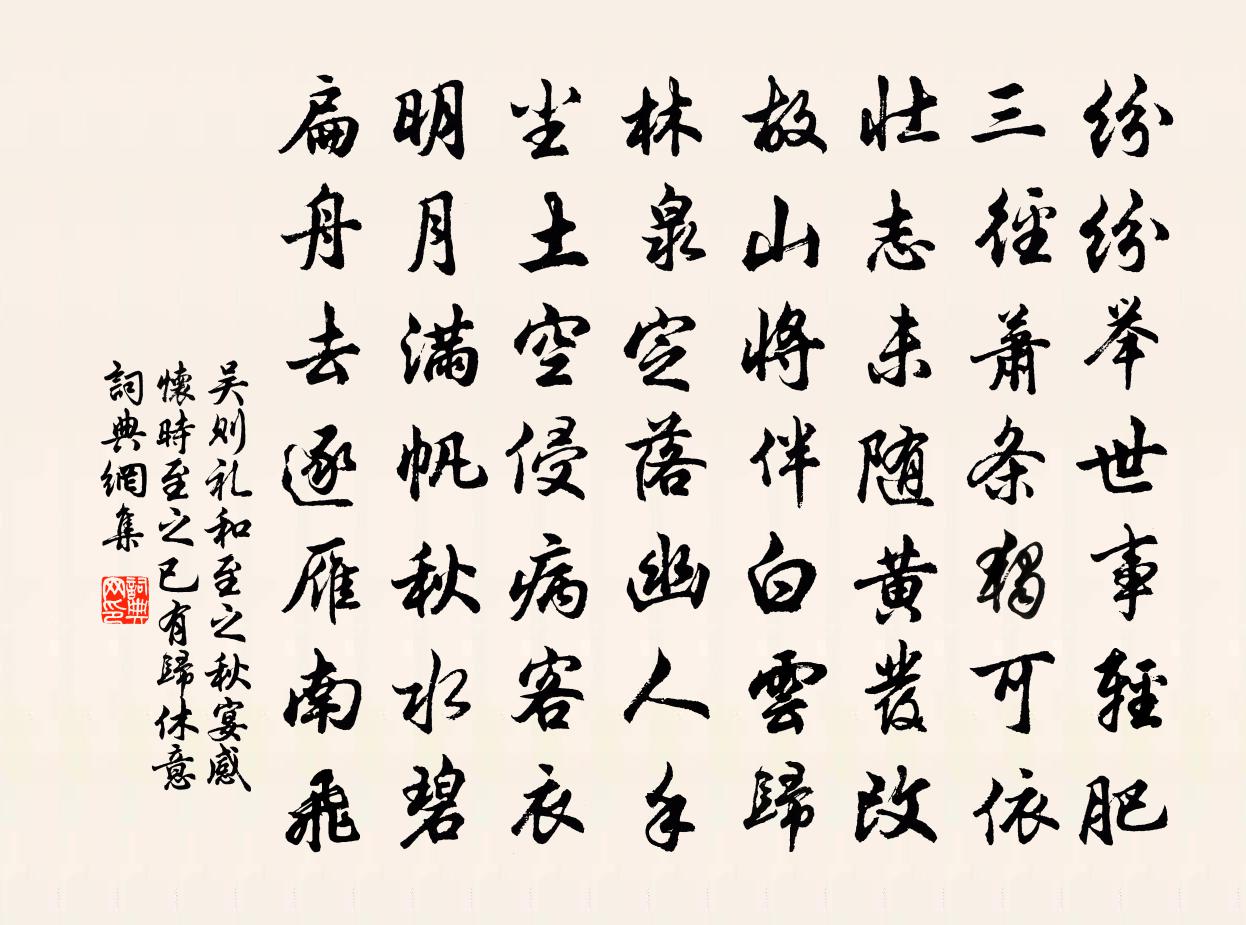 纷纷举世事輕肥
三徑萧条獨可依
壮志未随黄發改
故山將伴白雲歸
林泉定落幽人手
尘土空侵病客衣
明月满帆秋水碧
扁舟去逐雁南飛
吴则礼和至之秋宴感
懷時至之已有歸休意
詞典網集
詞典网印